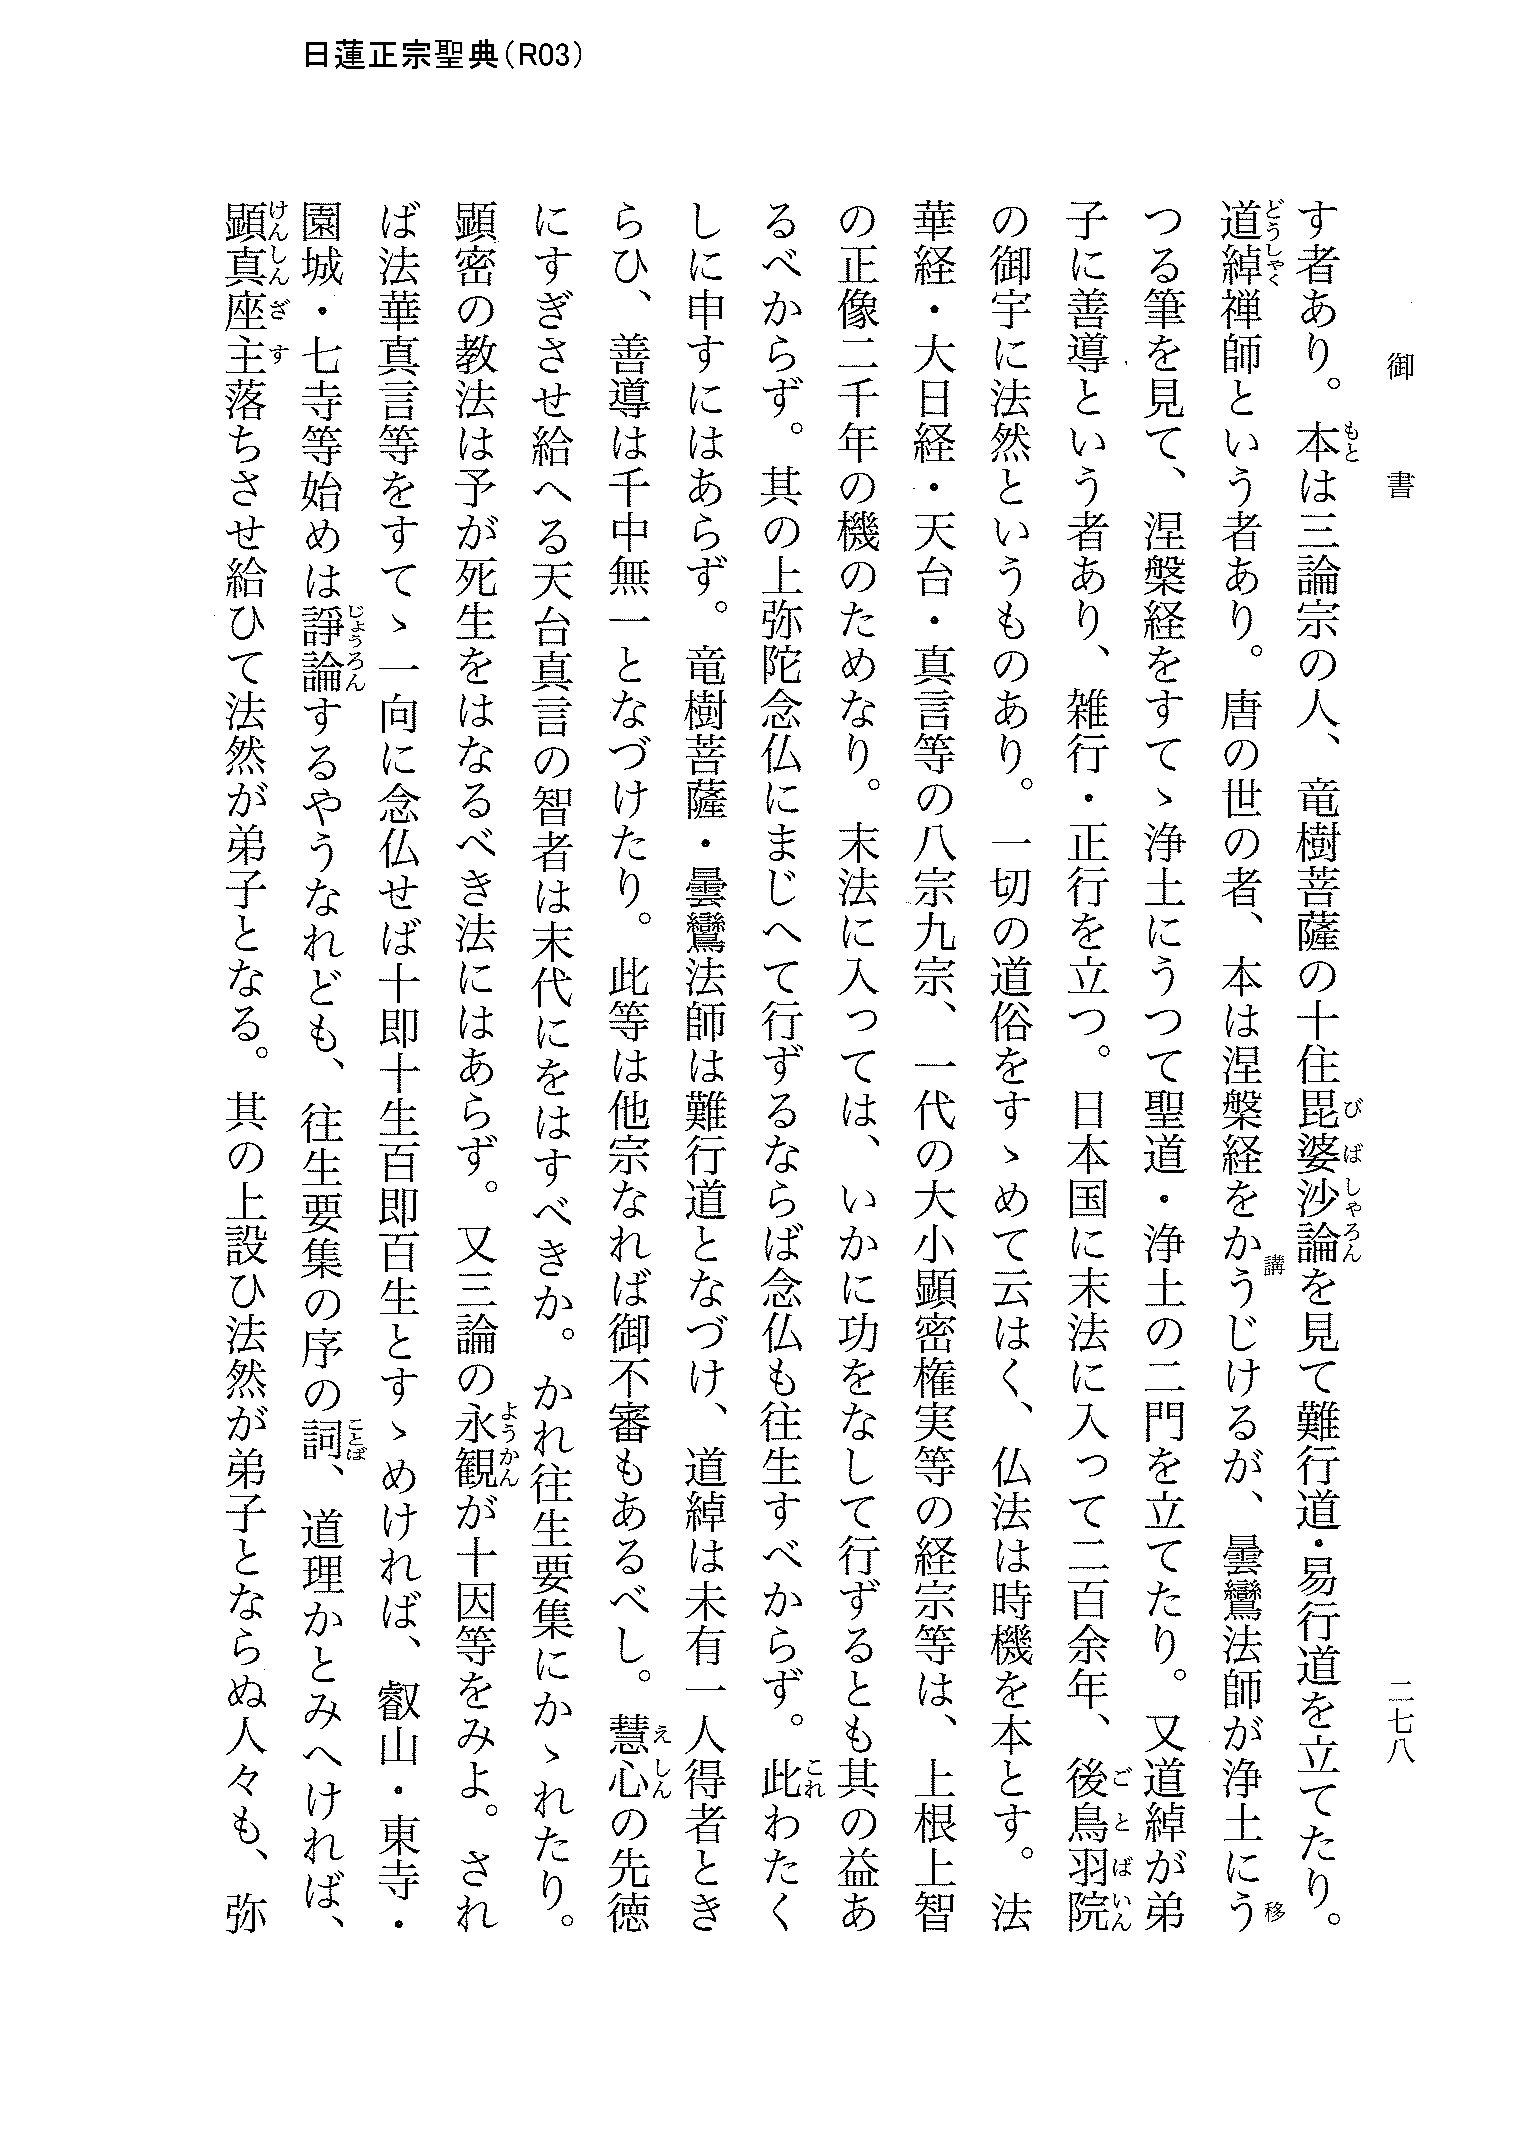 日蓮正宗聖典（R03）
御書
二七八
す者あり。本は三論宗の人、竜樹菩薩の十住毘婆沙論を見て難行道・易行道を立てたり。
道綽禅師という者あり。唐の世の者、本は涅槃経をかうじけるが、曇鸞法師が浄土にう
つる筆を見て、涅槃経をすてゝ浄土にうつて聖道・浄土の二門を立てたり。又道綽が弟
子に善導という者あり、雑行・正行を立つ。日本国に末法に入って二百余年、後鳥羽院
の御宇に法然というものあり。一切の道俗をすゝめて云はく、仏法は時機を本とす。法
華経・大日経・天台・真言等の八宗九宗、一代の大小顕密権実等の経宗等は、上根上智
の正像二千年の機のためなり。末法に入っては、いかに功をなして行ずるとも其の益あ
るべからず。其の上弥陀念仏にまじへて行ずるならば念仏も往生すべからず。此わたく
しに申すにはあらず。竜樹菩薩・曇鸞法師は難行道となづけ、道綽は未有一人得者とき
らひ、善導は千中無一となづけたり。此等は他宗なれば御不審もあるべし。慧心の先徳
にすぎさせ給へる天台真言の智者は末代にをはすべきか。かれ往生要集にかゝれたり。
顕密の教法は予が死生をはなるべき法にはあらず。又三論の永観が十因等をみよ。され
ば法華真言等をすてゝ一向に念仏せば十即十生百即百生とすゝめければ、叡山・東寺・
園城・七寺等始めは諍論するやうなれども、往生要集の序の詞、道理かとみへければ、
顕真座主落ちさせ給ひて法然が弟子となる。其の上設ひ法然が弟子とならぬ人々も、弥